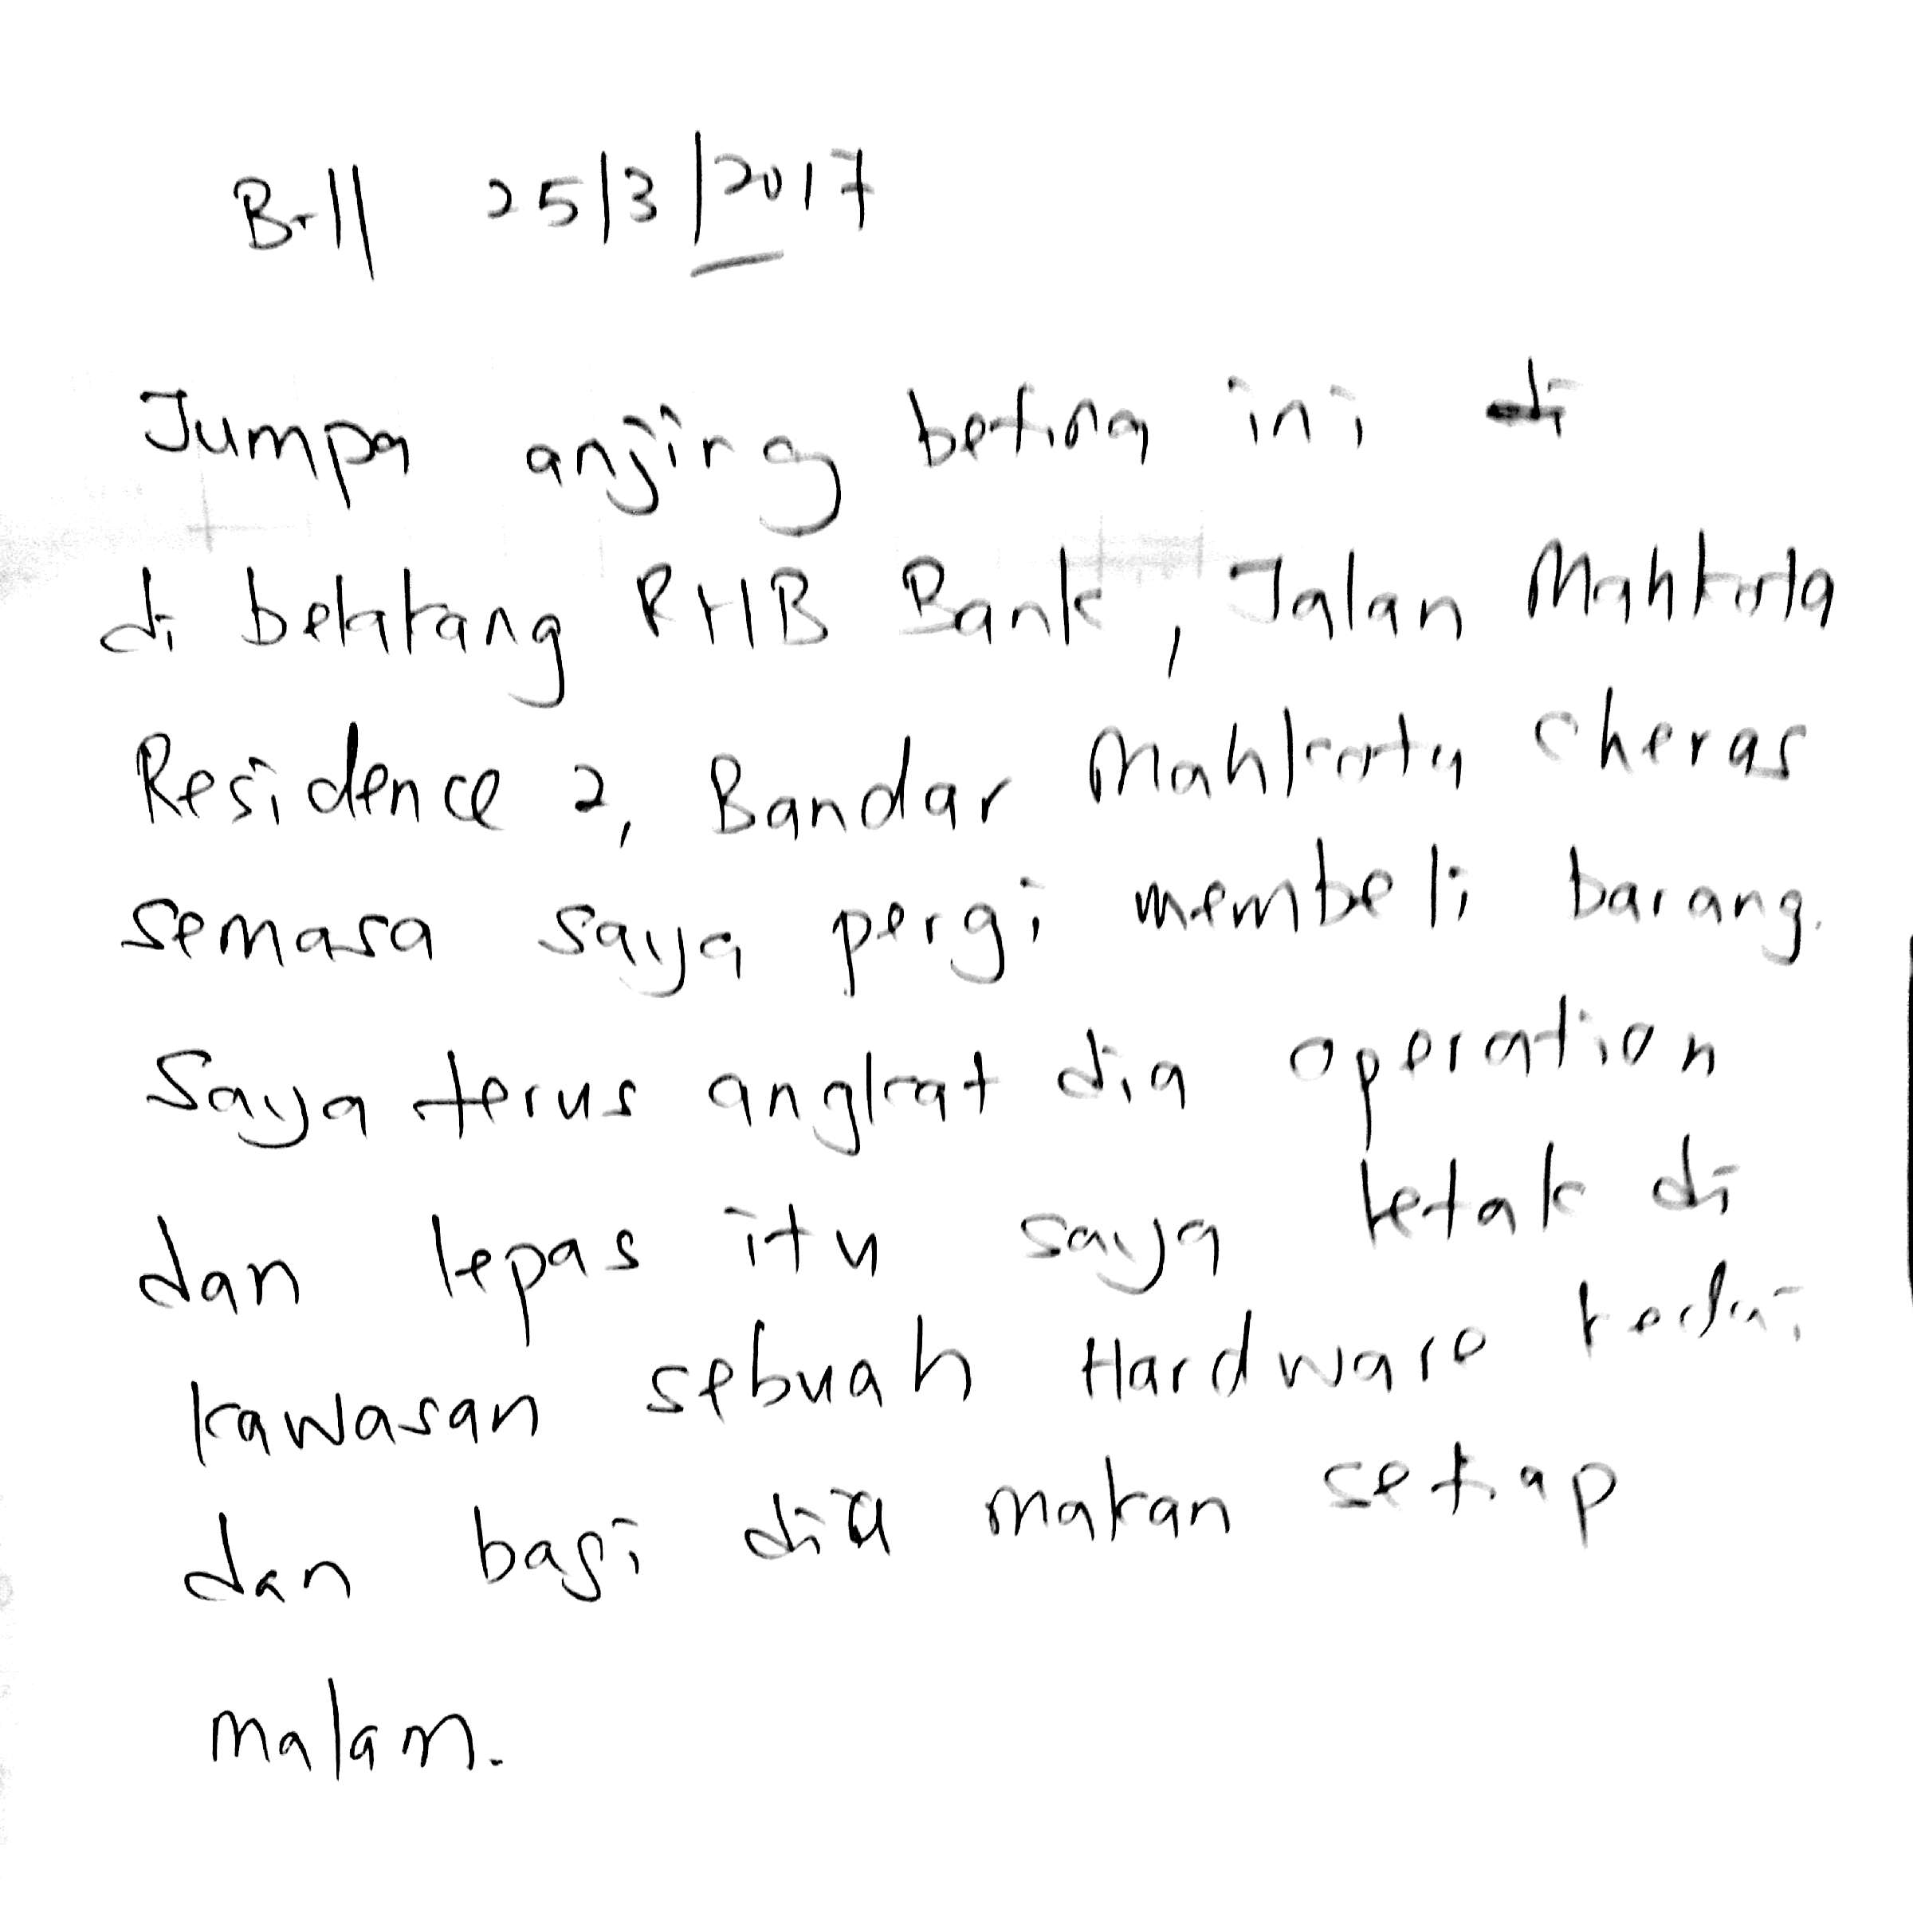 Bill 25/3/2017
Jumpa anjing betina ini di
di belakang RHB Bank, Jalan Mahkota
Residence 2, Bandar Mahkota Cheras
semasa saya pergi membeli barang.
Saya terus angkat dia operation
dan lepas itu saya letak di
kawasan sebuah Hardware kedai
dan bagi dia makan setiap
malam.